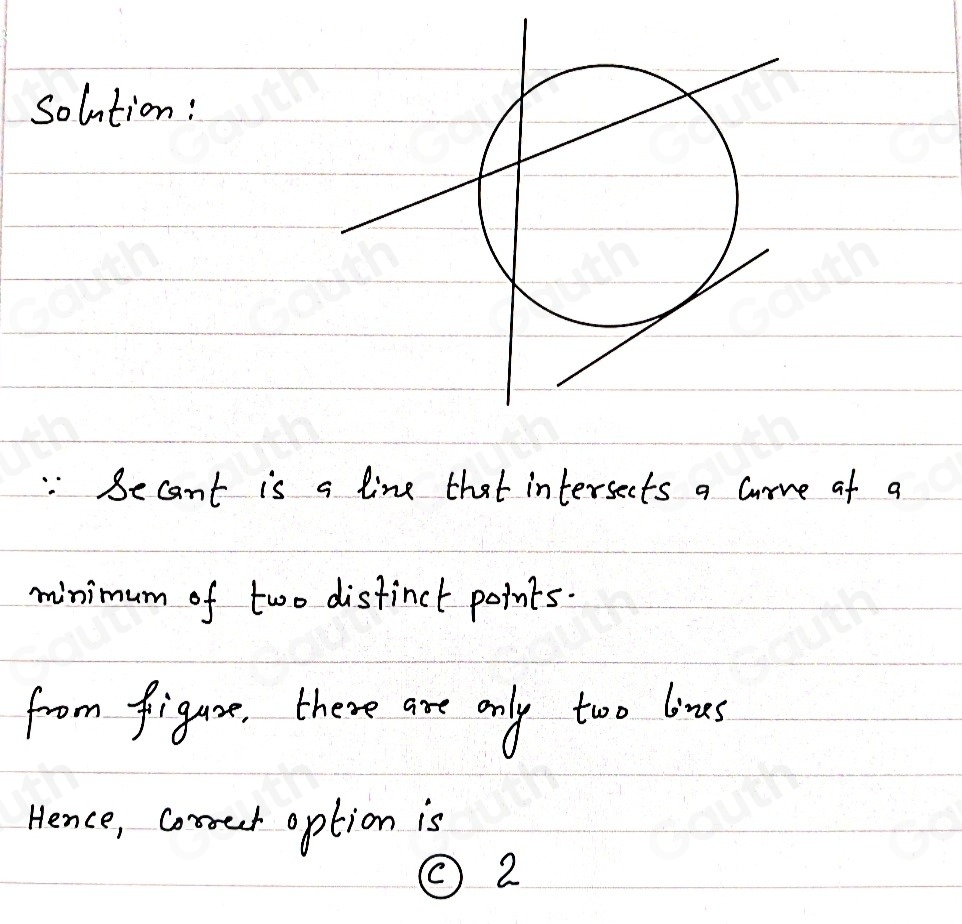 Solution:
∵ Secant is a line that intersects a curve at a
minimum of two distinct points.
from figure, there are only two lines
Hence, correct option is
Ⓒ 2